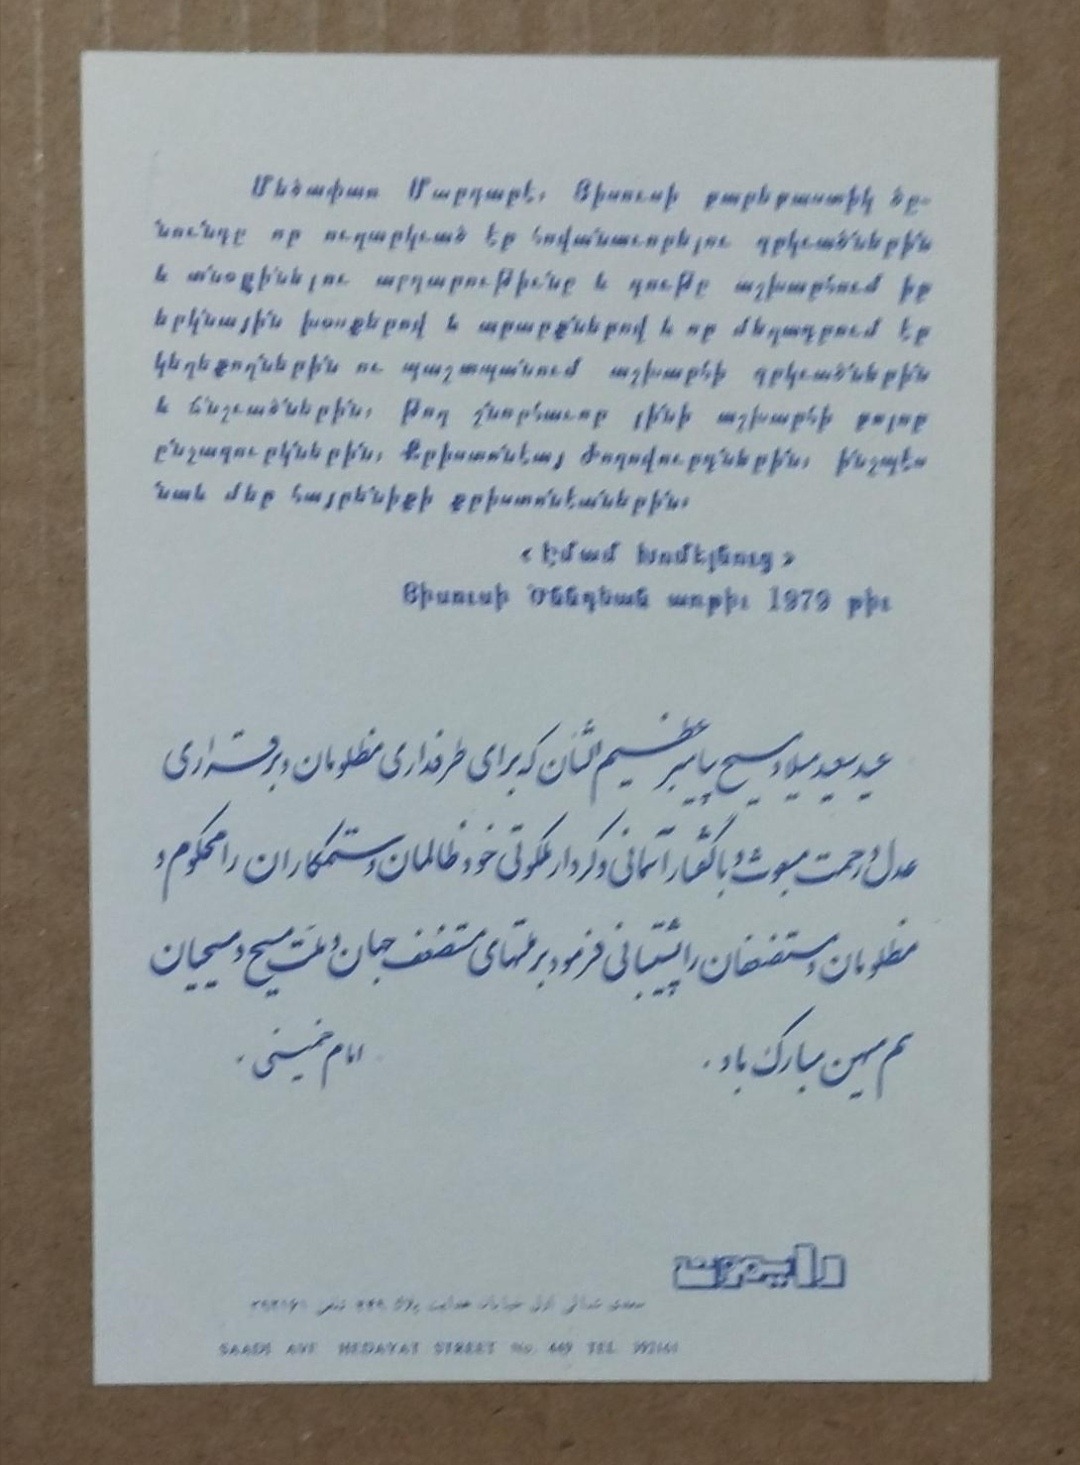 Մեծափառ Մարդարէ, Յիսուսի բարեբաստիկ ծը-
նունդը որ ուղարկւած էր հովանաւորելու զրկւածներին
և անօքինելու արդարութիւնը և գութը աշխարհում իր
երկնային խօսքերով և արարքներով և որ մեղադրում էր
կեղեքողներին ու պաշտպանում աշխարհի զրկւածներին
և ճնշւածներին, թող շնորհաւոր լինի աշխարհի բոլոր
ընչազուրկներին, Քրիստոնէայ ժողովուրդներին, ինչպէս
նաև մեր հայրենիքի քրիստոնէաներին,
« Էմամ Խոմէյնուց »
Յիսուսի Ծննդեան առթիւ 1979 թիւ
عید سعید میلاد مسیح پیامبر عظیم الشأن که برای طرفداری مظلومان و برقراری
عدل و رحمت مبعوث و با گفتار آسمانی و کردار ملکوتی خود ظالمان و ستمکاران را محکوم و
مظلومان و مستضعفان را پشتیبانی فرمود بر ملتهای مستضعف جهان و ملت مسیح و مسیحیان
هم میهن مبارک باد .
امام خمینی .
سعدی شمالی اول خیابان هدایت پلاک ۴۴۹ تلفن
SAADI AVE HEDAYAT STREET No. 449 TEL